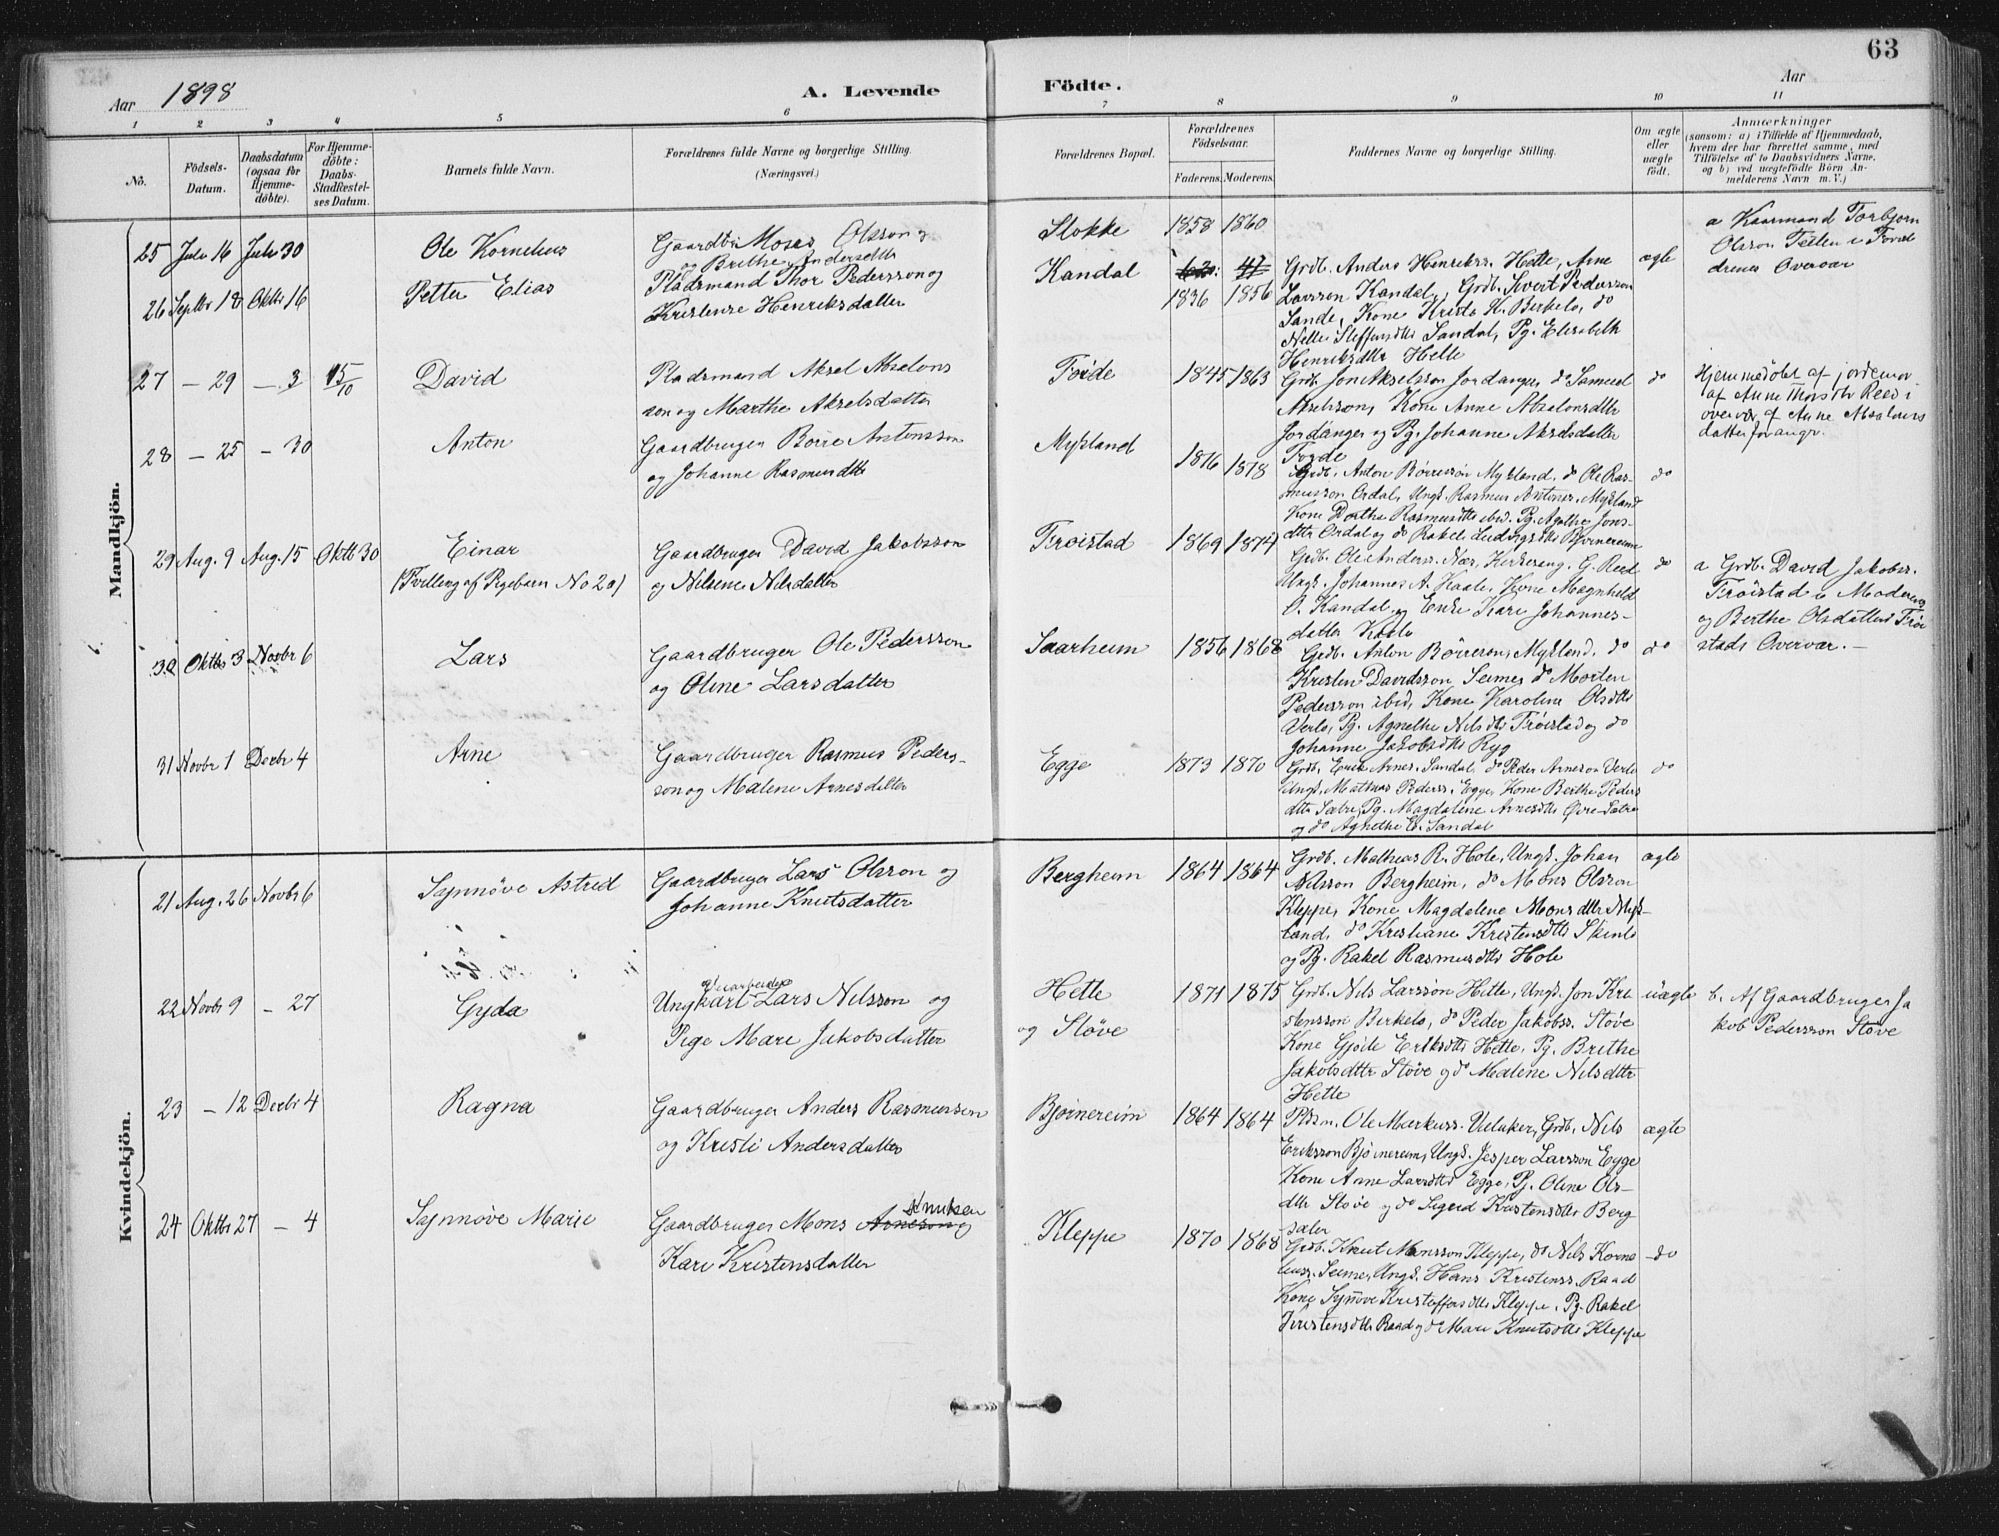 63
Aar 1898 A. Levende Födte. Aar
1 2 3 4 5 6 7 8 9 10 11
No.
Födsels-
Datum.
Daabsdatum
(ogsaa for
Hjemme-
döbte).
For Hjemme-
döbte:
Daabs-
Stadfæstel-
ses Datum.
Barnets fulde Navn.
Forældrenes fulde Navne og borgerlige Stilling.
(Næringsvei.)
Forældrenes Bopæl.
Forældrenes
Födselsaar.
Faderens. Moderens.
Faddernes Navne og borgerlige Stilling.
Om ægte
eller
uægte
födt.
Anmærkninger
(saasom: a) i Tilfælde af Hjemmedaab,
hvem der har forrettet samme, med
Tilföielse af to Daabsvidners Navne,
og b) ved uægtefödte Börn An-
melderens Navn m. V.)
Mandkjön.
25 Juli 16 Juli 30 Ole Kornelius
Gaardbr. Moses Olsson og
Brithe Andersdtter
Slokke 1858 1860
a Kaarmand Torbjørn
Olsson
Overvær
26 Septbr 18 Oktbr 16 Petter Elias
Pladsmand Thor Pedersson og
Kristense Henriksdatter
Kandal
1836 1856
Grdb. Anders Henrikss. Hette, Arne
Larsson Kandal, Grdb. Sivert Pedersson
Sande, Kone Kristi K. Birkelo, do
Nille Steffensdtt Sandal, Pg. Elisabeth
Henriksdtter Hette
ægte
27 — 29 — 3 15/10 David
Pladsmand Aksel Absalons
son og Marthe Akselsdatter
Föide 1845 1863
Grdb. Jon Akselsson Jordanger, do Samuel
Akselsson, Kone Anne Absalonsdtter
Jordanger og Pg. Johanne Akselsdatter
do
Hjemmedöbt af jordemor
af Anne
overvær af Anne
28 — 25 — 30 Anton
Gaardbruger Börre Antonsson
og Johanne Rasmusdtter
Mykland 1876 1878
Grdb. Anton Börresson Mykland, do Ole Ras-
musson Ordal, Ungk. Rasmus Antonss. Mykland
Kone Dorthe Rasmusdtts ibid. Pg. Agathe Jons-
dtter Ordal og do Rakel Ludvigsdtts Bjørnereim
do
29 Aug. 9 Aug. 15 Oktb 30 Einar
(Tvilling af Pigebarn No 20)
Gaardbruger David Jakobsson
og Nilsine Nilsdatter
Trøistad 1869 1874
Grdb. Ole Anderss. Nær, Kirkesang. G. Reed
Ungk. Johannes A. Kaale, Kone Magnhild
O. Kandal og Enke Kari Johannes-
datter Kaale
do
a Grdb. David Jakobss.
Trøistad i Moderens
og Berthe Olsdatter Trøi
stads Overvær. —
30 Oktbr 3 Novbr 6 Lars
Gaardbruger Ole Pedersson
og Oline Larsdatter
Saarheim 1856 1868
Grdb. Anton Börreson Mykland, do
Kristen Davidsson Seime, do Morten
Pedersson ibid, Kone Karoline Olsdtts
Verlo, Pg. Agnethe Nilsdtts Trøistad og do
Johanne Jakobsdtts Ryg
do
31 Novbr 1 Decbr 4 Arne
Gaardbruger Rasmus Peders-
son og Malene Arnesdatter
Egge 1873 1870
Grdb. Erik Arnes. Sandal, do Peder Arneson Verlo
Ungk. Mathias Pederss. Egge, Kone Berthe Peders
dtter Sætre, Pg. Magdalene Arnesdtts Øvre-Sætre
og do Agnethe E. Sandal
do
Kvindekjön.
21 Aug. 26 Novbr 6 Synnöve Astrid
Gaardbruger Lars Olsson og
Johanne Knutsdatter
Bergheim 1864 1864
Grdb. Mathias R. Hole, Ungk. Johan
Nilsson Bergheim, do Mons Olsson
Kleppe, Kone Magdalene Monsdtter Myk-
land, do Kristiane Kristensdtts
og Pg. Rakel Rasmusdtts Hole
ægte
22 Novbr 9 — 27 Gyda
Veiarbeider
Ungkarl Lars Nilsson og
Pige Mari Jakobsdatter
Hette
og Støve
1871 1875
Grdb. Nils Larsson Hette, Ungk. Jon Kri
stensson Birkelo, do Peder Jakobss. Støve
Kone Gjøile Eriksdtts Hette, Pg. Brithe
Jakobsdtter Støve og do Malene Nilsdtter
Hette
uægte
b. Af Gaardbruger Ja
kob Pedersson Støve
23 — 12 Decbr 4 Ragna
Gaardbruger Anders Rasmussen
og Kristi Andersdatter
Bjørnereim 1864 1864
Pldsm. Ole Markuss. Utvker, Grdb. Nils
Eriksson Bjørnereim, Ungk. Jesper Larsson Egge
Kone Anne Larsdtts Egge, Pg. Oline Ols-
dtter Støve og do Sigrid Kristensdtts Berg
sæter
ægte
24 Oktbr 27 — 4 Synnöve Marie
Knutsen
Gaardbruger Mons Arneson og
Kari Kristensdatter
Kleppe 1870 1868
Grdb. Knut Monsson Kleppe, do Nils Korne
liuss. Seime, Ungk. Hans Kristenss. Raad
Kone Synöve Kristoffersdtts Kleppe, Pg. Rakel
Kristensdtts Raad og do Mari Knutsdtts Kleppe
do